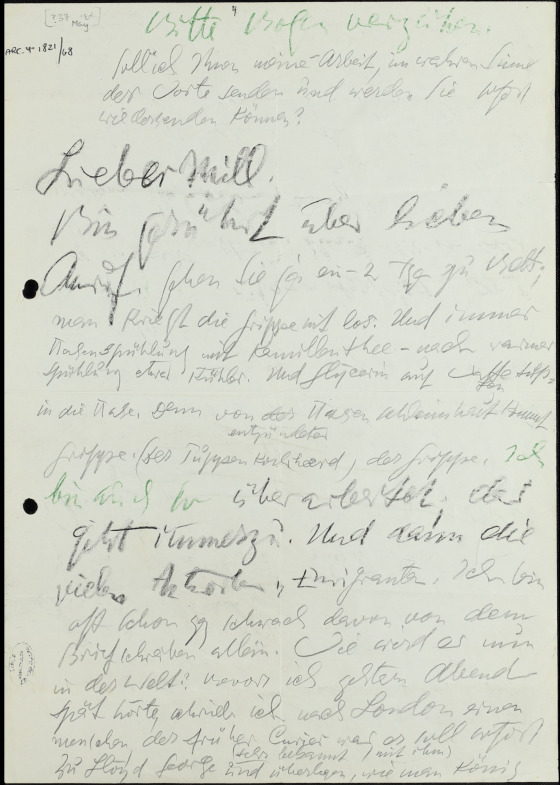 [337 May]
ARC. 4° 1821/68
4
Bitte Bogen verzeihen.
Soll ich Ihnen meine Arbeit, im wahren Sinne
der Worte senden und werden Sie sofort
wiedersenden können?
Lieber Mill.
Bin gerührt über lieben
Anruf. Gehen Sie ja ein-2 Tg zu Bett;
man kriegt die Grippe mit los. Und immer
Nasenspühlung mit Kamillenthee - nach warmer
spühlung etwas kühler. Und Glycerin auf Watte
in die Nase. Denn von der Nasenschleimhaut kommt
entzündeten
Grippe. (der Grippe. Ich
bin auch so überarbeitet; das
geht immerzu. Und dann die
vielen Emigranten. Ich bin
oft schon ganz schwach davon von dem
Briefschreiben allein. Wie wird es nun
in der Welt? bevor ich gestern Abend
spät hörte, schrieb ich nach London einen
menschen, der früher Curier war er soll sofort
(sehr bekannt mit ihm)
zu Lloyd George und überlegen, wie man König